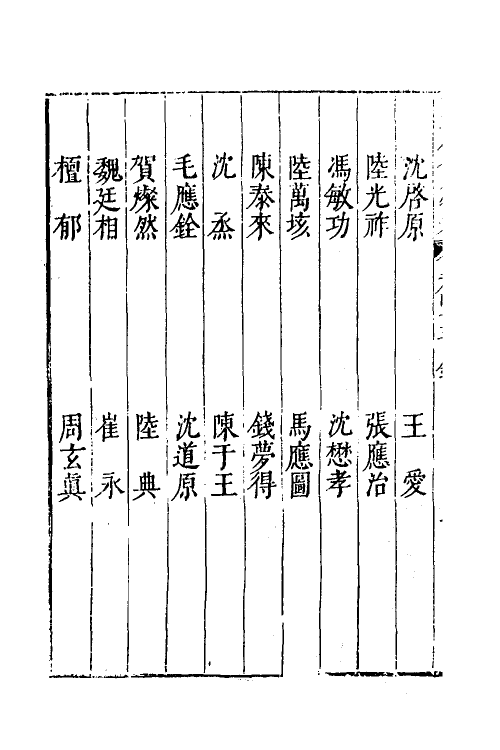 沈啓原 王愛
陸光祚 張應治
馮敏功 沈懋孝
陸萬垓 馬應圖
陳泰來 錢夢得
沈烝 陳于王
毛應銓 沈道原
賀燦然 陸典
魏廷相 崔永
檀郁 周玄眞